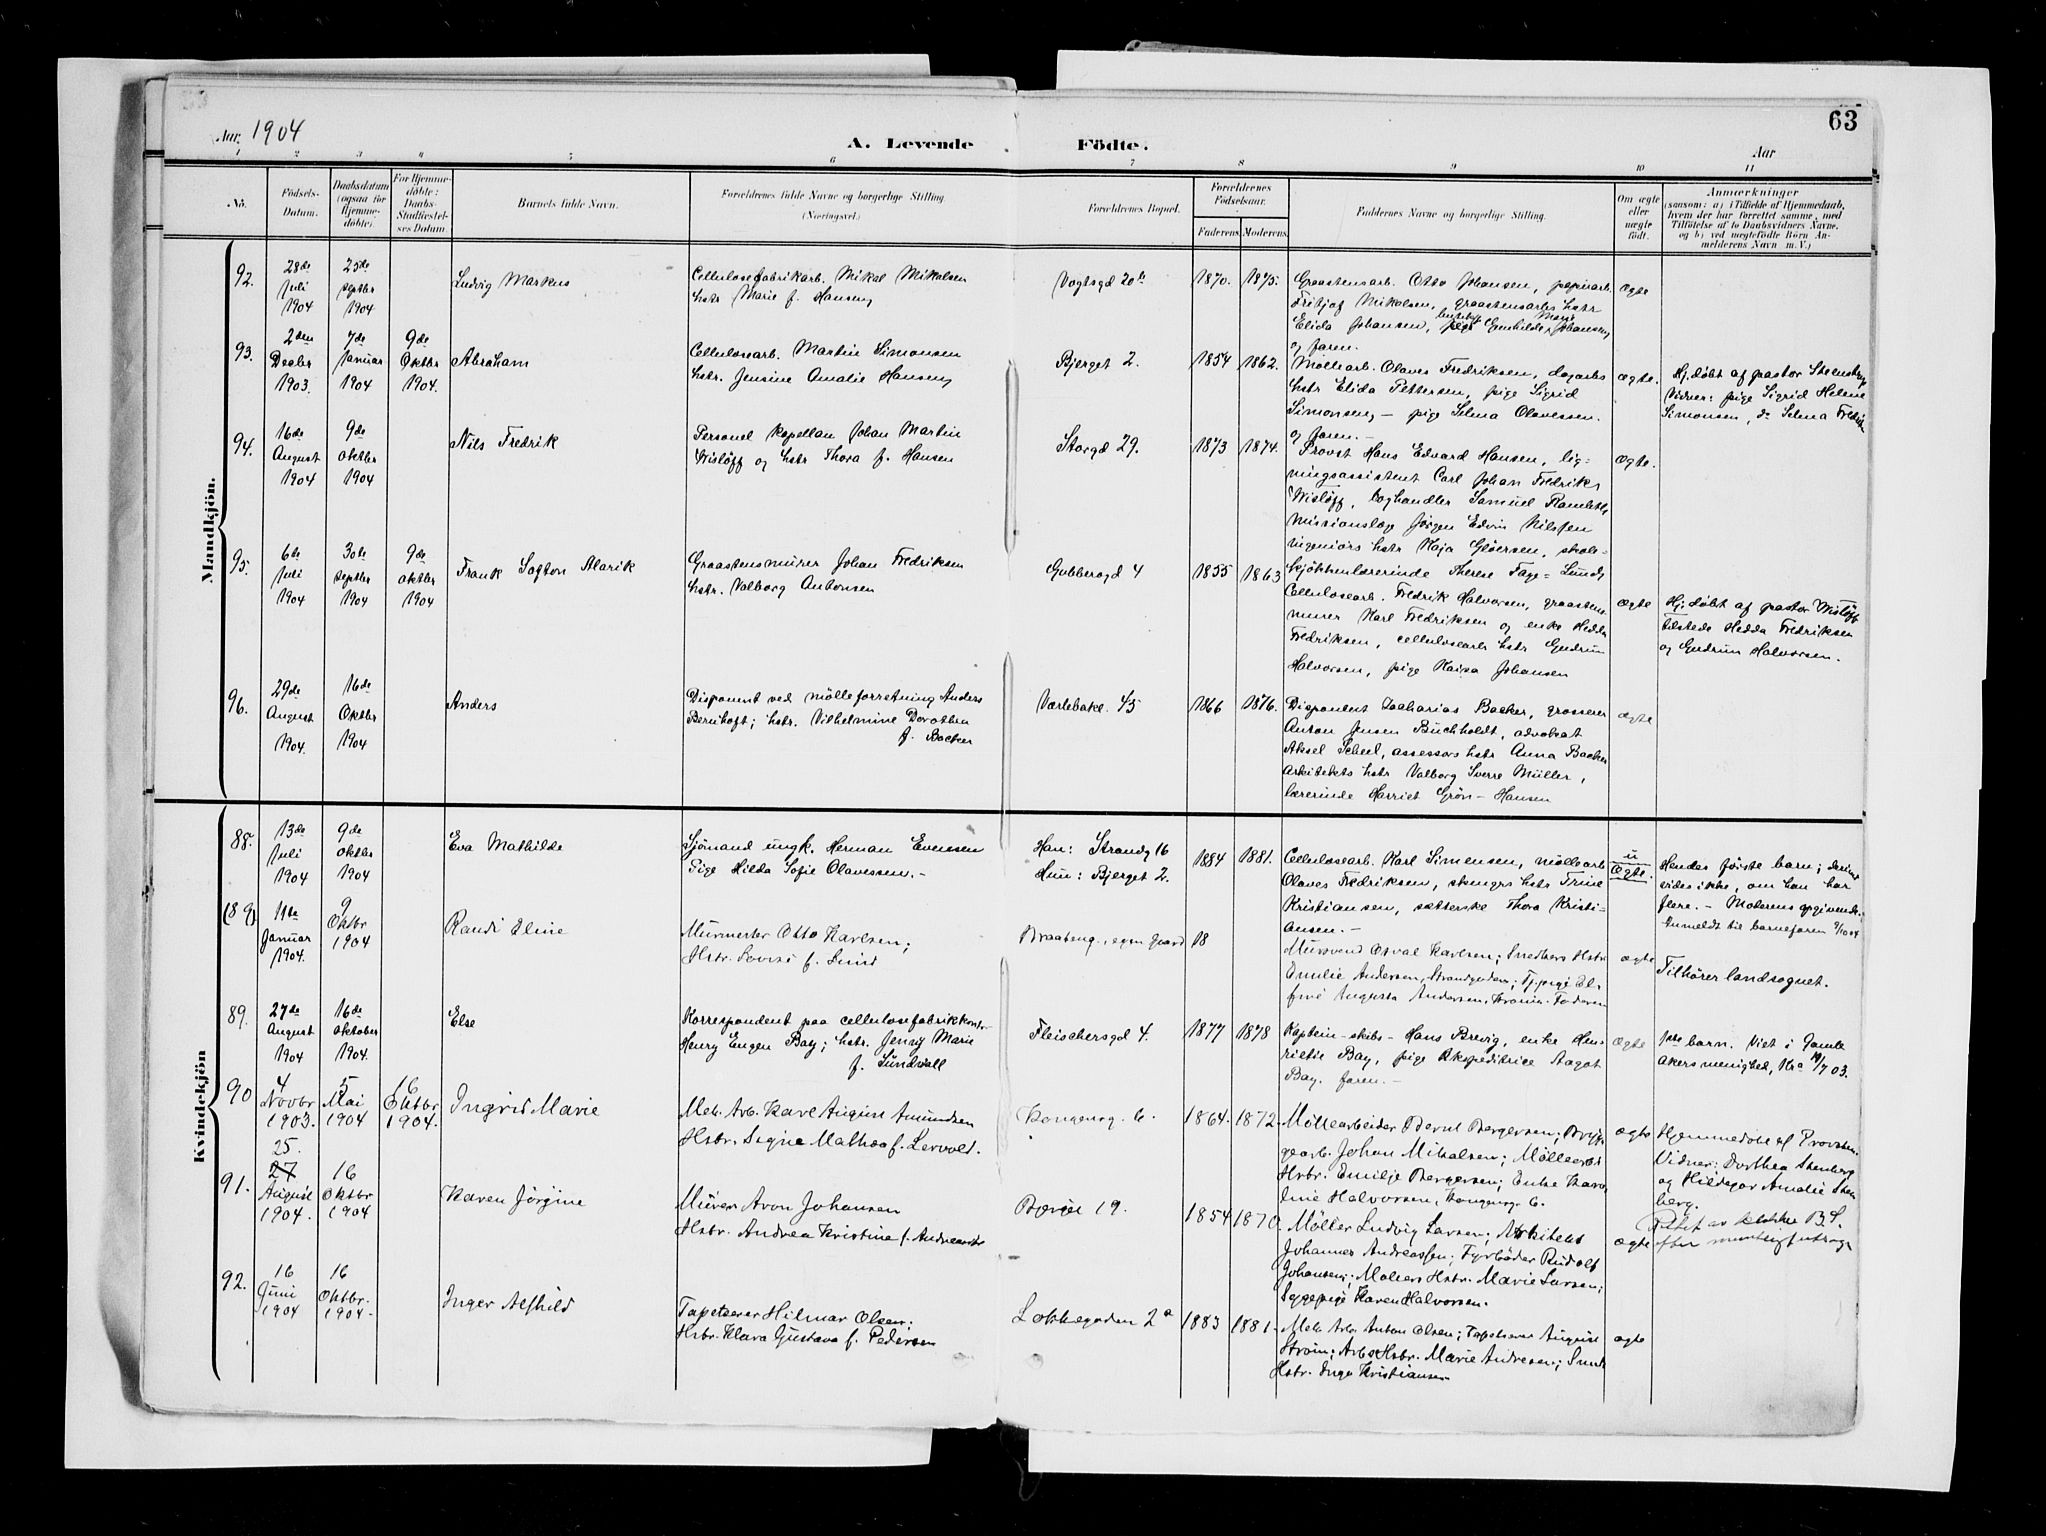 63
Aar 1904
A. Levende Födte.
Aar
1 2 3 4 5 6 7 8 9 10 11
No.
Födsels-
Datum.
Daabsdatum
(ogsaa for
Hjemme-
döbte).
For Hjemme-
döbte:
Daabs-
Stadfæstel-
ses Datum.
Barnets fulde Navn.
Forældrenes fulde Navne og borgerlige Stilling
(Næringsvei.)
Forældrenes Bopæl.
Forældrenes
Födselsaar.
Faderens. Moderens.
Faddernes Navne og borgerlige Stilling.
Om ægte
eller
uægte
födt.
Anmærkninger
(saasom: a) i Tilfælde af Hjemmedaab,
hvem der har forrettet samme, med
Tilföielse af to Daabsvidners Navne,
og b) ved uægtefödte Börn An-
melderens Navn m. V.)
Mandkjön.
92.
28de
Juli
1904
25de
septbr
1904
Ludvig Markus
Cellulosefabrikarb. Mikal Mikalsen
hstr Marie f. Hansen
Vogtsgd 20b
1870. 1875.
Graastensarb. Otto Johansen, papirarb.
Fritjof Mikalsen, graastensarbs hstr
Elida Johansen, pige Gunhilda Johansen
og faren.
ægte
93.
2den
Decbr
1903.
7de
Januar
1904
9de
Oktbr
1904.
Abraham
Cellulosearb. Martin Simonsen
hstr. Jensine Amalie Hansen
Bjerget 2.
1854 1862.
Möllearb. Olaves Fredriksen, dagarbs
hstr Elida Pettersen, pige Sigrid
Simonsen, – pige Selma Olavessen.
og faren. –
ægte.
Hj. döbt af pastor Steenstrup
Vidner: pige Sigrid Helene
Simonsen, do Selma Fredrik
94.
16de
August
1904
9de
oktbr
1904
Nils Fredrik
Personel kapellan Johan Martin
Wislöff og hstr Thora f. Hansen
Storgd 29.
1873 1874.
Provst Hans Edvard Hansen, lig-
ningsassistent Carl Johan Fredrik
Wislöff, boghandler Samuel
Missionslæge Jörgen Edvin Nilssen
ingeniörs hstr Kaja Glöersen, skole-
kjökkenlærerinde Therese Faye-Lund
ægte.
95.
6de
Juli
1904
30de
septbr
1904
9de
oktbr
1904
Frank Softon Alarik
Graastensmurer Johan Fredriksen
hstr. Valborg Antonsen
Gubberogd 4
1855 1863
Cellulosearb. Fredrik Halvorsen, graastens-
murer Karl Fredriksen og enke Hedda
Fredriksen, cellulosearb hstr Gudrun
Halvorsen, pige Kaisa Johansen
ægte
Hj. döbt af pastor Wislöff
tilstede Hedda Fredriksen
og Gudrun Halvorsen.
96.
29de
August
1904.
16de
Oktbr
1904
Anders
Disponent ved mölleforretning Anders
Bernhoft; hstr. Vilhelmine Dorothea
f. Backer
Værlebake. 45
1866 1876.
Disponent Zacharias Backer, grosserer
Anton Jensen Buchholdt, advokat
Aksel Scheel, assessors hstr Anna Backer
Arkitekts hstr Valborg Sverre Müller,
lærerinde Harriet Grön-Hansen
ægte
Kvindekjön
88.
13de
Juli
1904
9de
oktbr
1904
Eva Mathilde
Sjömand ungk. Herman Evensen
Pige Hilda Sofie Olavessen. –
Han: Strandg 16
Hun: Bjerget 2.
1884 1881.
Cellulosearb. Karl Simensen, möllearb
Olaves Fredriksen, stengers hstr Trine
Kristiansen, sætterske Thora Kristi-
ansen. –
u
ægte.
Hendes förste barn;
vides ikke, om han har
flere. – Moderens opgivende.
Anmeldt til barnefaren 9/10 04
(89)
11te
Januar
1904.
9
Oktbr
1904
Randi Eline
Murmester Otto Karlsen;
Hstr. Lovise f. Lund
Braateng., egen Gaard
18
Mursvend Osval Karlsen; Snedkers Hstr
Emilie Andersen, Strandgaden; Tj. pige El-
frid Augusta Andersen, Kronin. Faderen
ægte
Tilhører landsognet.
89.
27de
August
1904
16de
oktober
1904.
Else
Korrespondent paa cellulosefabrikkontor
Henry Eugen Bay; hstr. Jenny Marie
f. Sundvall
Fleischersgd 4.
1877 1878
Kaptein – skibs – Hans Brevig, enke Hen-
riette Bay, pige Ekspeditrice Aagot
Bay. faren. –
ægte
1ste barn. Viet i Gamle
Akers menighed, Kra 19/7 03.
90
4
Novbr
1903.
5
Mai
1904
16
Oktbr
1904.
Ingrid Marie
Mek. Arb. Karl August Amundsen
Hstr. Signe Mathea f. Lervold.
Kongensg. 6.
1864. 1872.
Möllearbeider Bernt Bergersen; Bryg-
gearb. Johan Mikalsen; Möllearb
Hstr. Emilje Bergersen; Enke Karo-
line Halvorsen, Kongensg. 6.
ægte
Hjemmedöbt af Provsten.
Vidner: Dorthea Stenberg
og Hildegar Amalie Sten
berg.
91.
25.
27
August
1904.
16
Oktbr
1904
Karen Jörgine
Murer Aron Johansen
Hstr. Andrea Kristine f. Andreassen
Bergæt 19.
1854 1870.
Möller Ludvig Larsen; Arkitekt
Johannes Andreassen; Fyrböder Rudolf
Johansen; Möllers Hstr. Marie Larsen;
Sygepige Karen Halvorsen.
ægte
Rettet av klokker B.S.
efter
92.
16
Juni
1904
16
Oktbr.
1904.
Inger Alfhild
Tapetserer Hilmar Olsen;
Hstr. Klara Gustava f. Pedersen
Lokkegaden 2a
1883 1881.
Mek Arb. Anton Olsen; Tapetserer August
Ström; Arbs Hstr. Marie Andresen; Smeds
Hstr. Inga Kristiansen
ægte